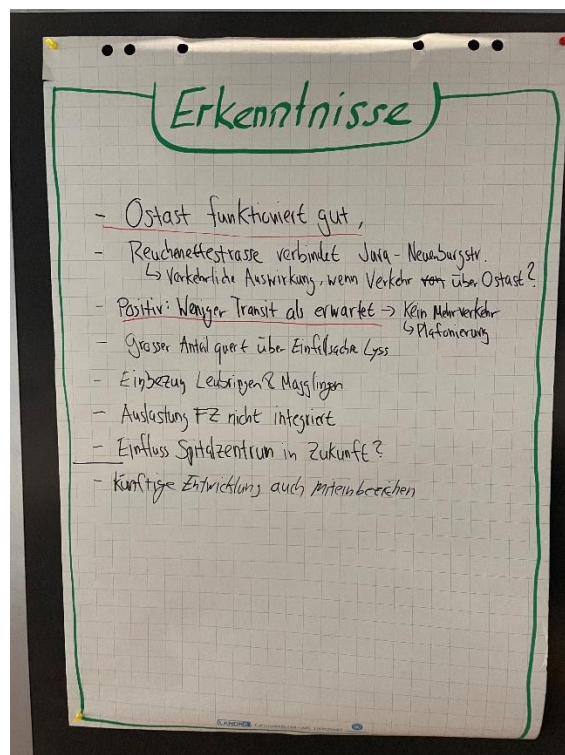 Erkenntnisse
- Ostast funktioniert gut,
- Reuchenettestrasse verbindet Jura - Neuenburgstr.
↳ Verkehrliche Auswirkung, wenn Verkehr über Ostast?
- Positiv: Weniger Transit als erwartet → Kein Mehrverkehr
↳ Plafonierung
- Grosser Anteil quert über Lyss
- Einbezug Leubringen & Magglingen
- Auslastung FZ nicht integriert
- Einfluss Spitalzentrum in Zukunft?
- Künftige Entwicklung auch miteinbeziehen
LANDRÉ